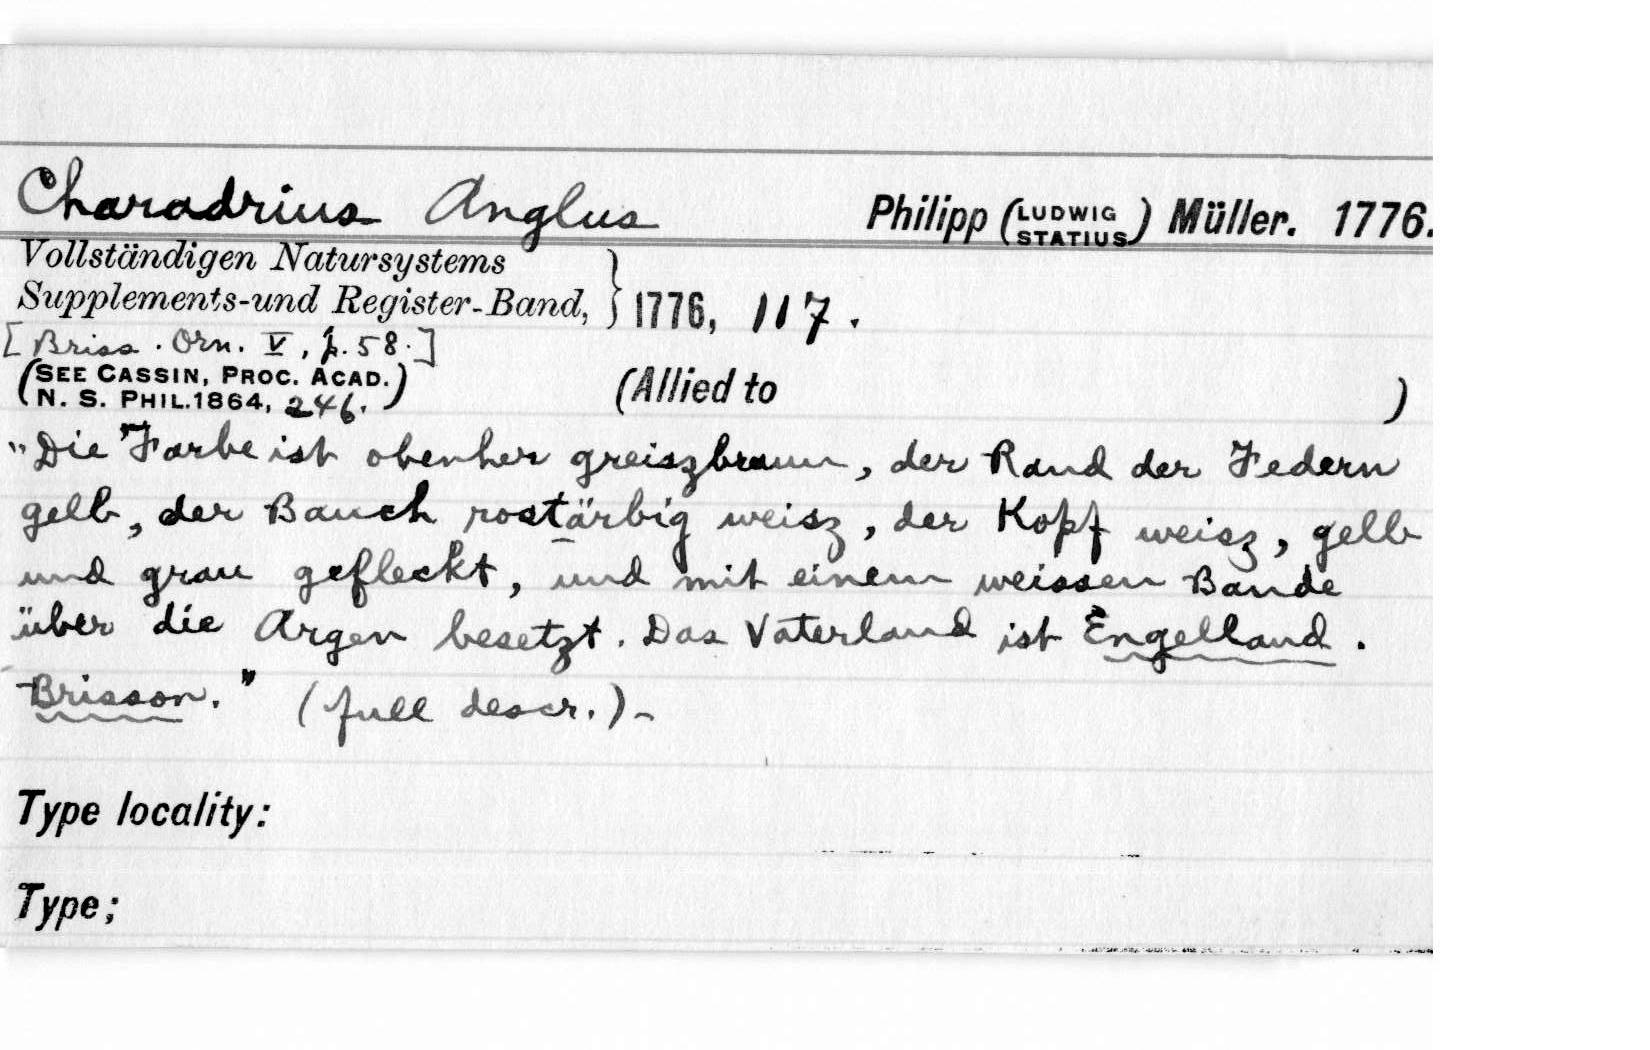 Charadrius Anglus Philipp (LUDWIG STATIUS) Müller. 1776.
Vollständigen Natursystems
Supplements-und Register-Band, } 1776, 117.
[Briss. Orn. V, p. 58.]
(SEE CASSIN, PROC. ACAD.
N. S. PHIL. 1864, 246.) (Allied to )
"Die Farbe ist obenher greiszbraun, der Rand der Federn
gelb, der Bauch rostärbig weisz, der Kopf weisz, gelb
und grau gefleckt, und mit einem weissen Bande
über die Argen besetzt. Das Vaterland ist Engelland.
Brisson." (full descr.)-
Type locality:
Type;